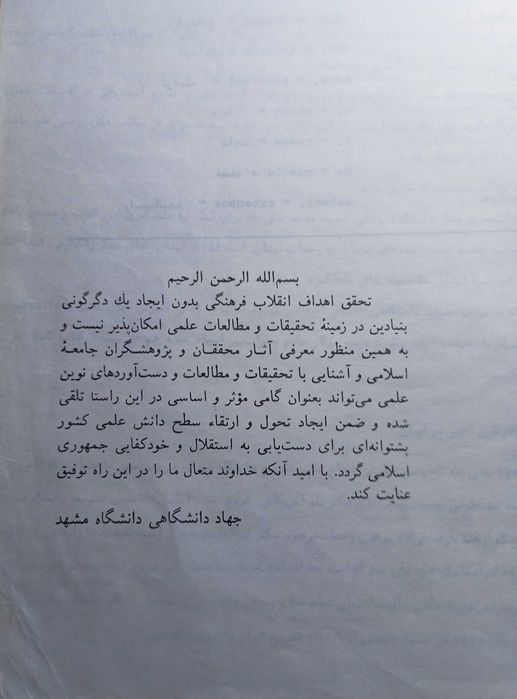 بسم‌الله الرحمن الرحیم
تحقق اهداف انقلاب فرهنگی بدون ایجاد یك دگرگونی
بنیادین در زمینهٔ تحقیقات و مطالعات علمی امکان‌پذیر نیست و
به همین منظور معرفی آثار محققان و پژوهشگران جامعهٔ
اسلامی و آشنایی با تحقیقات و مطالعات و دست‌آوردهای نوین
علمی می‌تواند بعنوان گامی مؤثر و اساسی در این راستا تلقی
شده و ضمن ایجاد تحول و ارتقاء سطح دانش علمی کشور
پشتوانه‌ای برای دست‌یابی به استقلال و خودکفایی جمهوری
اسلامی گردد. با امید آنکه خداوند متعال ما را در این راه توفیق
عنایت کند.
جهاد دانشگاهی دانشگاه مشهد